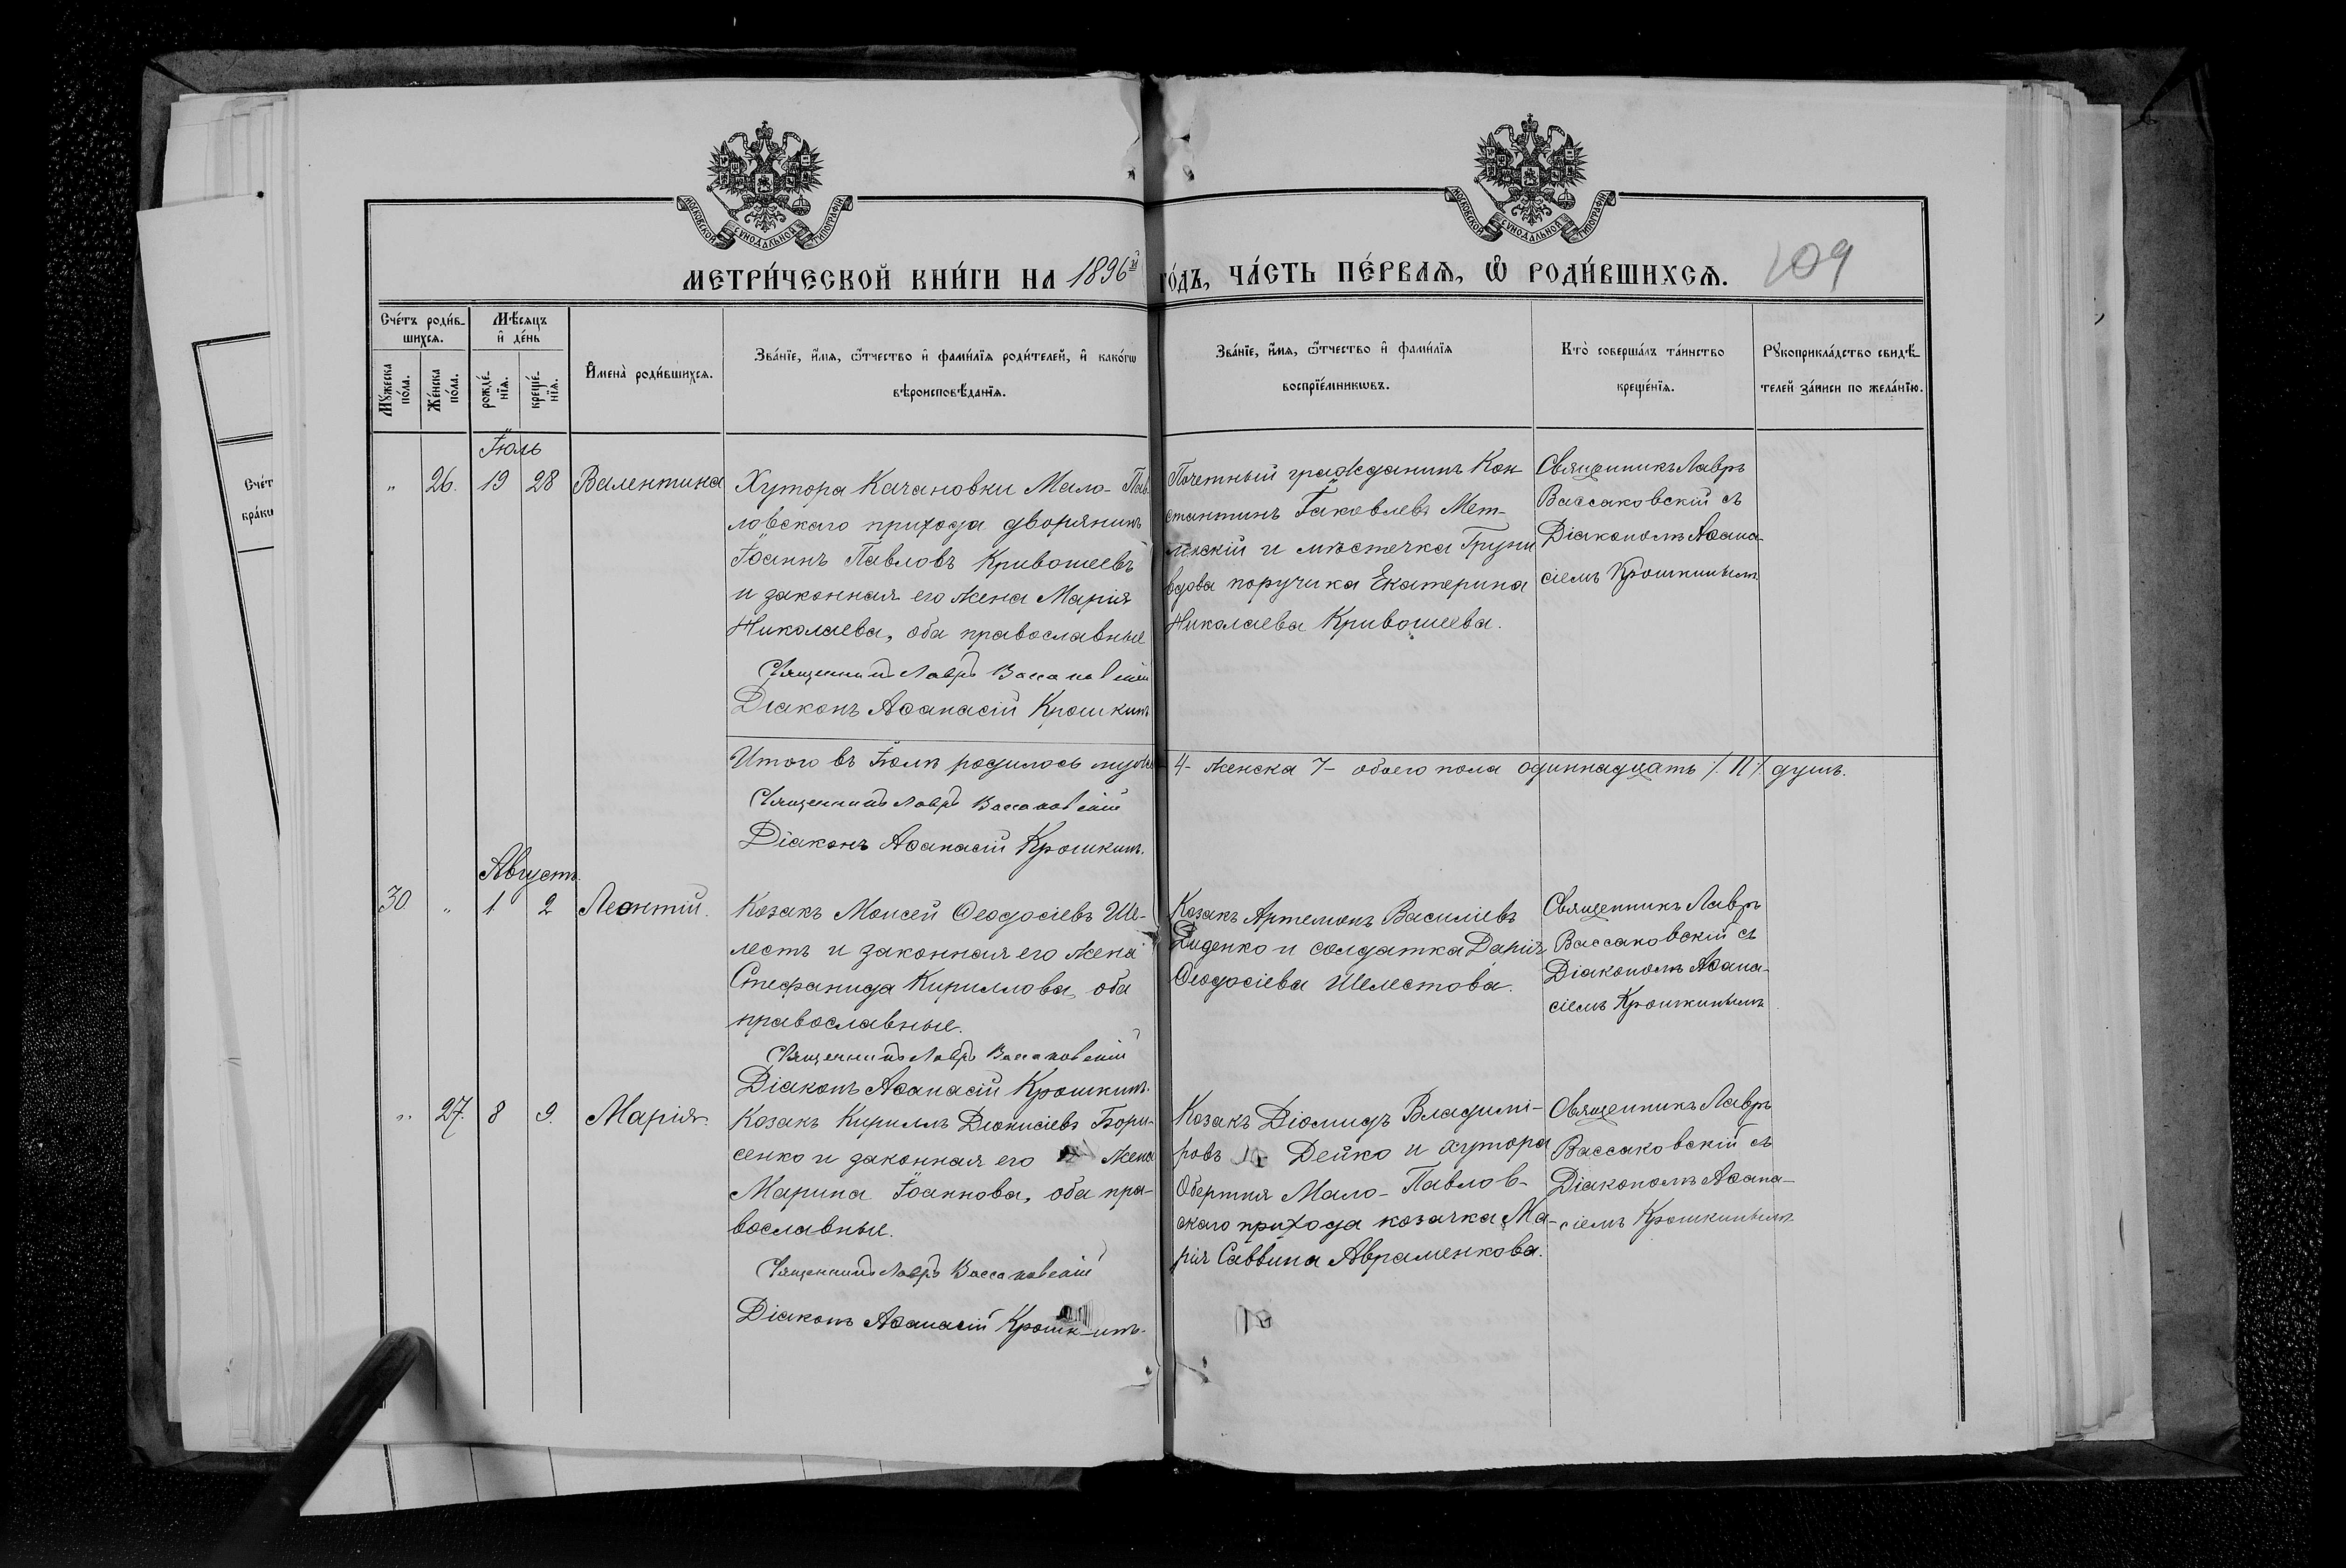 МОСКОВСКОЙ СУНОДАЛЬНОЙ ТИПОГРАФІИ
МОСКОВСКОЙ СУНОДАЛЬНОЙ ТИПОГРАФІИ
МЕТРИ́ЧЕСКОЙ КНИ́ГИ НА 1896й ГО́ДЪ, ЧА́СТЬ ПЕ́РВАЯ, Ѿ РОДИ́ВШИХСЯ. 109
Сче́тъ роди́в-
шихся.
Мꙋ́жеска по́ла.
Же́нска по́ла.
Мѣ́сяцъ и де́нь
рожде́нїя.
креще́нїя.
Имена̀ роди́вшихся.
Зва́нїе, и́мя, ѻ҆́тчество и фами́лїя роди́телей, и како́гѡ
вѣроисповѣ́данїя.
Зва́нїе, и́мя, ѻ҆́тчество и фами́лїя
воспрїе́мникѡвъ.
Кто̀ соверша́лъ та́инство
креще́нїя.
Рꙋкоприкла́дство свидѣ́-
телей за́писи по жела́нїю.
Іюль
" 26. 19 28 Валентина
Хутора Качановки Мало-Пав-
ловскаго прихода дворянинъ
Іоаннъ Павловъ Кривошеевъ
и законная его жена Марія
Николаева, оба православные
Священникъ Лавръ Вассаковскій
Діаконъ Аѳанасій Крошкинъ
Почетный гражданинъ Кон-
стантинъ Іаковлевъ Мет-
линскій и мѣстечка Груни
вдова поручика Екатерина
Николаева Кривошеева.
Священникъ Лавръ
Вассаковскій съ
Діакономъ Аѳана-
сіемъ Крошкинымъ
Итого въ Іюлѣ родилось мужеска 4- женска 7- обоего пола одиннадцать /.11/. душъ.
Священникъ Лавръ Вассаковскій
Діаконъ Аѳанасій Крошкинъ.
Августъ.
30 " 1 2 Леонтій.
Козакъ Моисей Ѳеодосіевъ Ше-
лестъ и законная его жена
Стефанида Кириллова, оба
православные.
Священникъ Лавръ Вассаковскій
Діаконъ Аѳанасій Крошкинъ.
Козакъ Артемонъ Василіевъ
Диденко и солдатка Дарія
Ѳеодосіева Шелестова.
Священникъ Лавръ
Вассаковскій съ
Діакономъ Аѳана-
сіемъ Крошкинымъ
" 27. 8 9. Марія.
Козакъ Кириллъ Діонисіевъ Бори-
сенко и законная его жена
Марина Іоаннова, оба пра-
вославные.
Священникъ Лавръ Вассаковскій
Діаконъ Аѳанасій Крошкинъ.
Козакъ Діомидъ Владимі-
ровъ Дейко и хутора
Обертня Мало-Павлов-
скаго прихода козачка Ма-
рія Саввина Авраменкова.
Священникъ Лавръ
Вассаковскій съ
Діакономъ Аѳана-
сіемъ Крошкинымъ